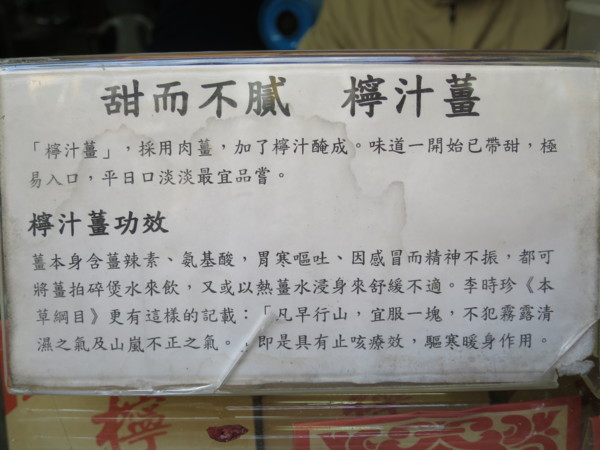 甜而不膩　檸汁薑
「檸汁薑」，採用肉薑，加了檸汁醃成。味道一開始已帶甜，極
易入口，平日口淡淡最宜品嘗。
檸汁薑功效
薑本身含薑辣素、氨基酸，胃寒嘔吐、因感冒而精神不振，都可
將薑拍碎煲水來飲，又或以熱薑水浸身來舒緩不適。李時珍《本
草綱目》更有這樣的記載：「凡早行山，宜服一塊，不犯霧露清
濕之氣及山嵐不正之氣。」即是具有止咳療效，驅寒暖身作用。
檸